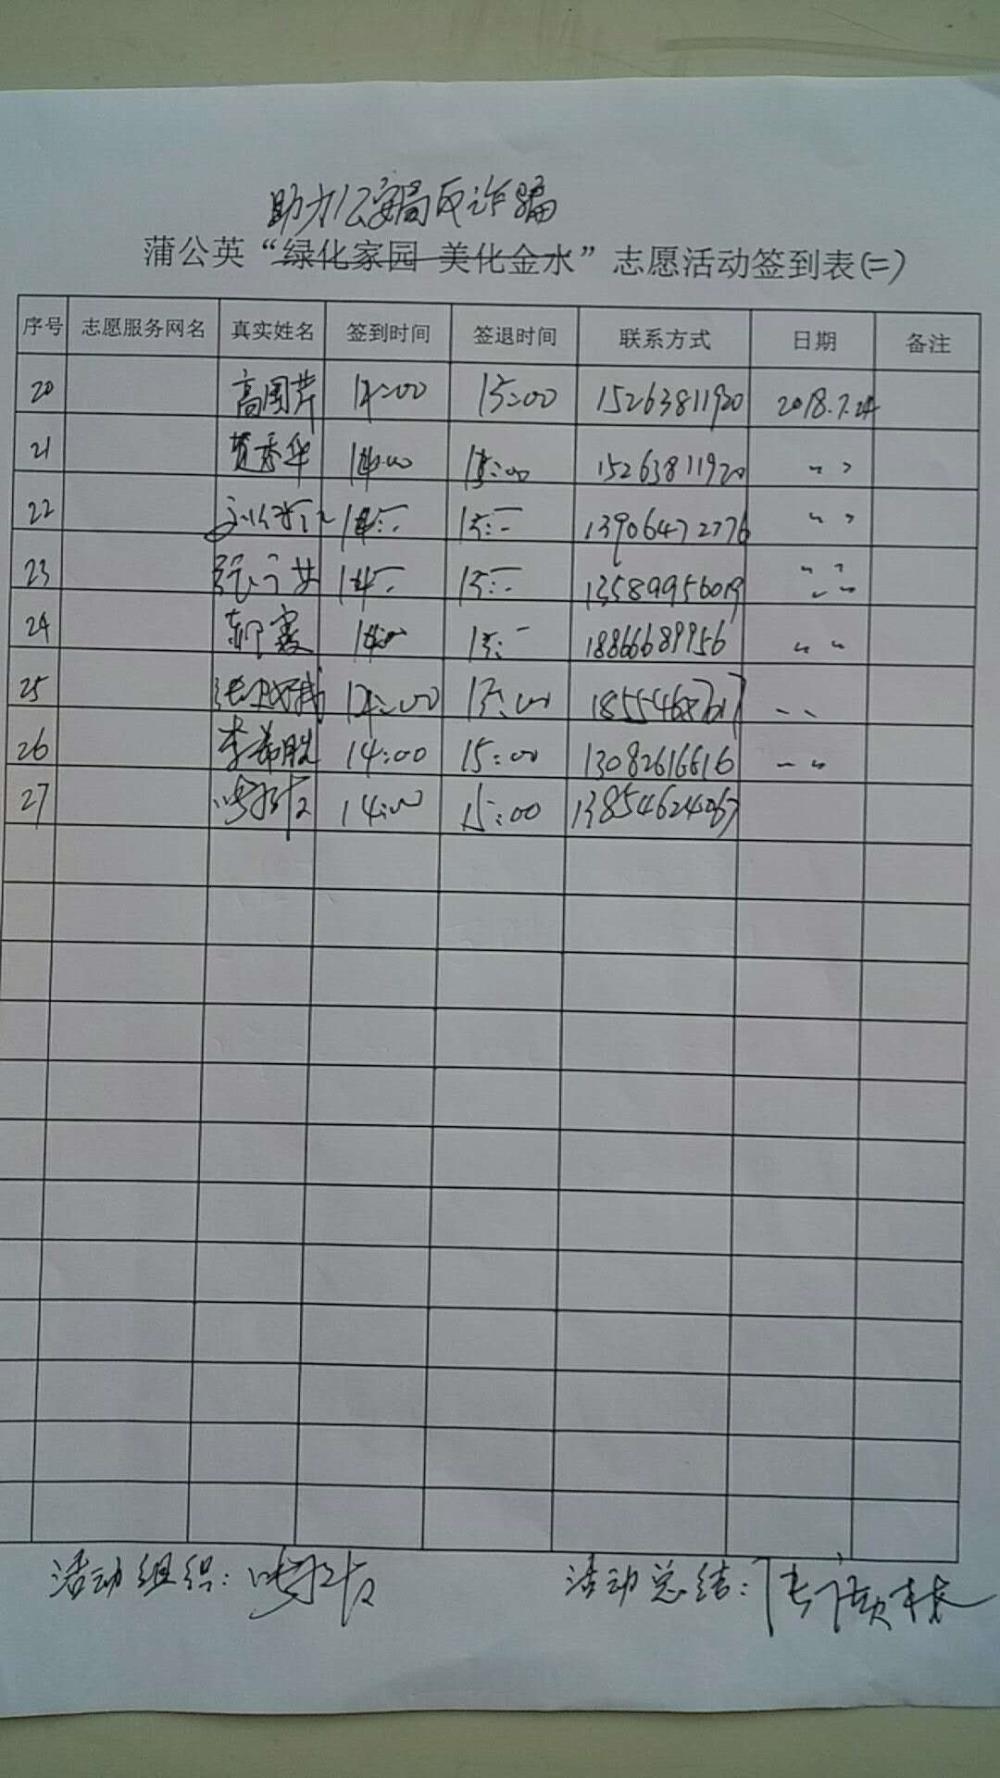 助力公安局反诈骗
蒲公英“绿化家园 美化金水”志愿活动签到表(二)
序号 志愿服务网名 真实姓名 签到时间 签退时间 联系方式 日期 备注
20 高围芹 14:00 15:00 15263811920 2018.7.24
21 贾秀华 14:00 15:00 15263811920 〃
22 14: 15: 13906472776 〃
23 14: 15: 13589956019 〃
24 霞 14:00 15: 18866689956 〃
25 14:00 15:00 〃
26 李希胜 14:00 15:00 13082616616 〃
27 14:00 15:00 13854624067
活动组织: 活动总结: